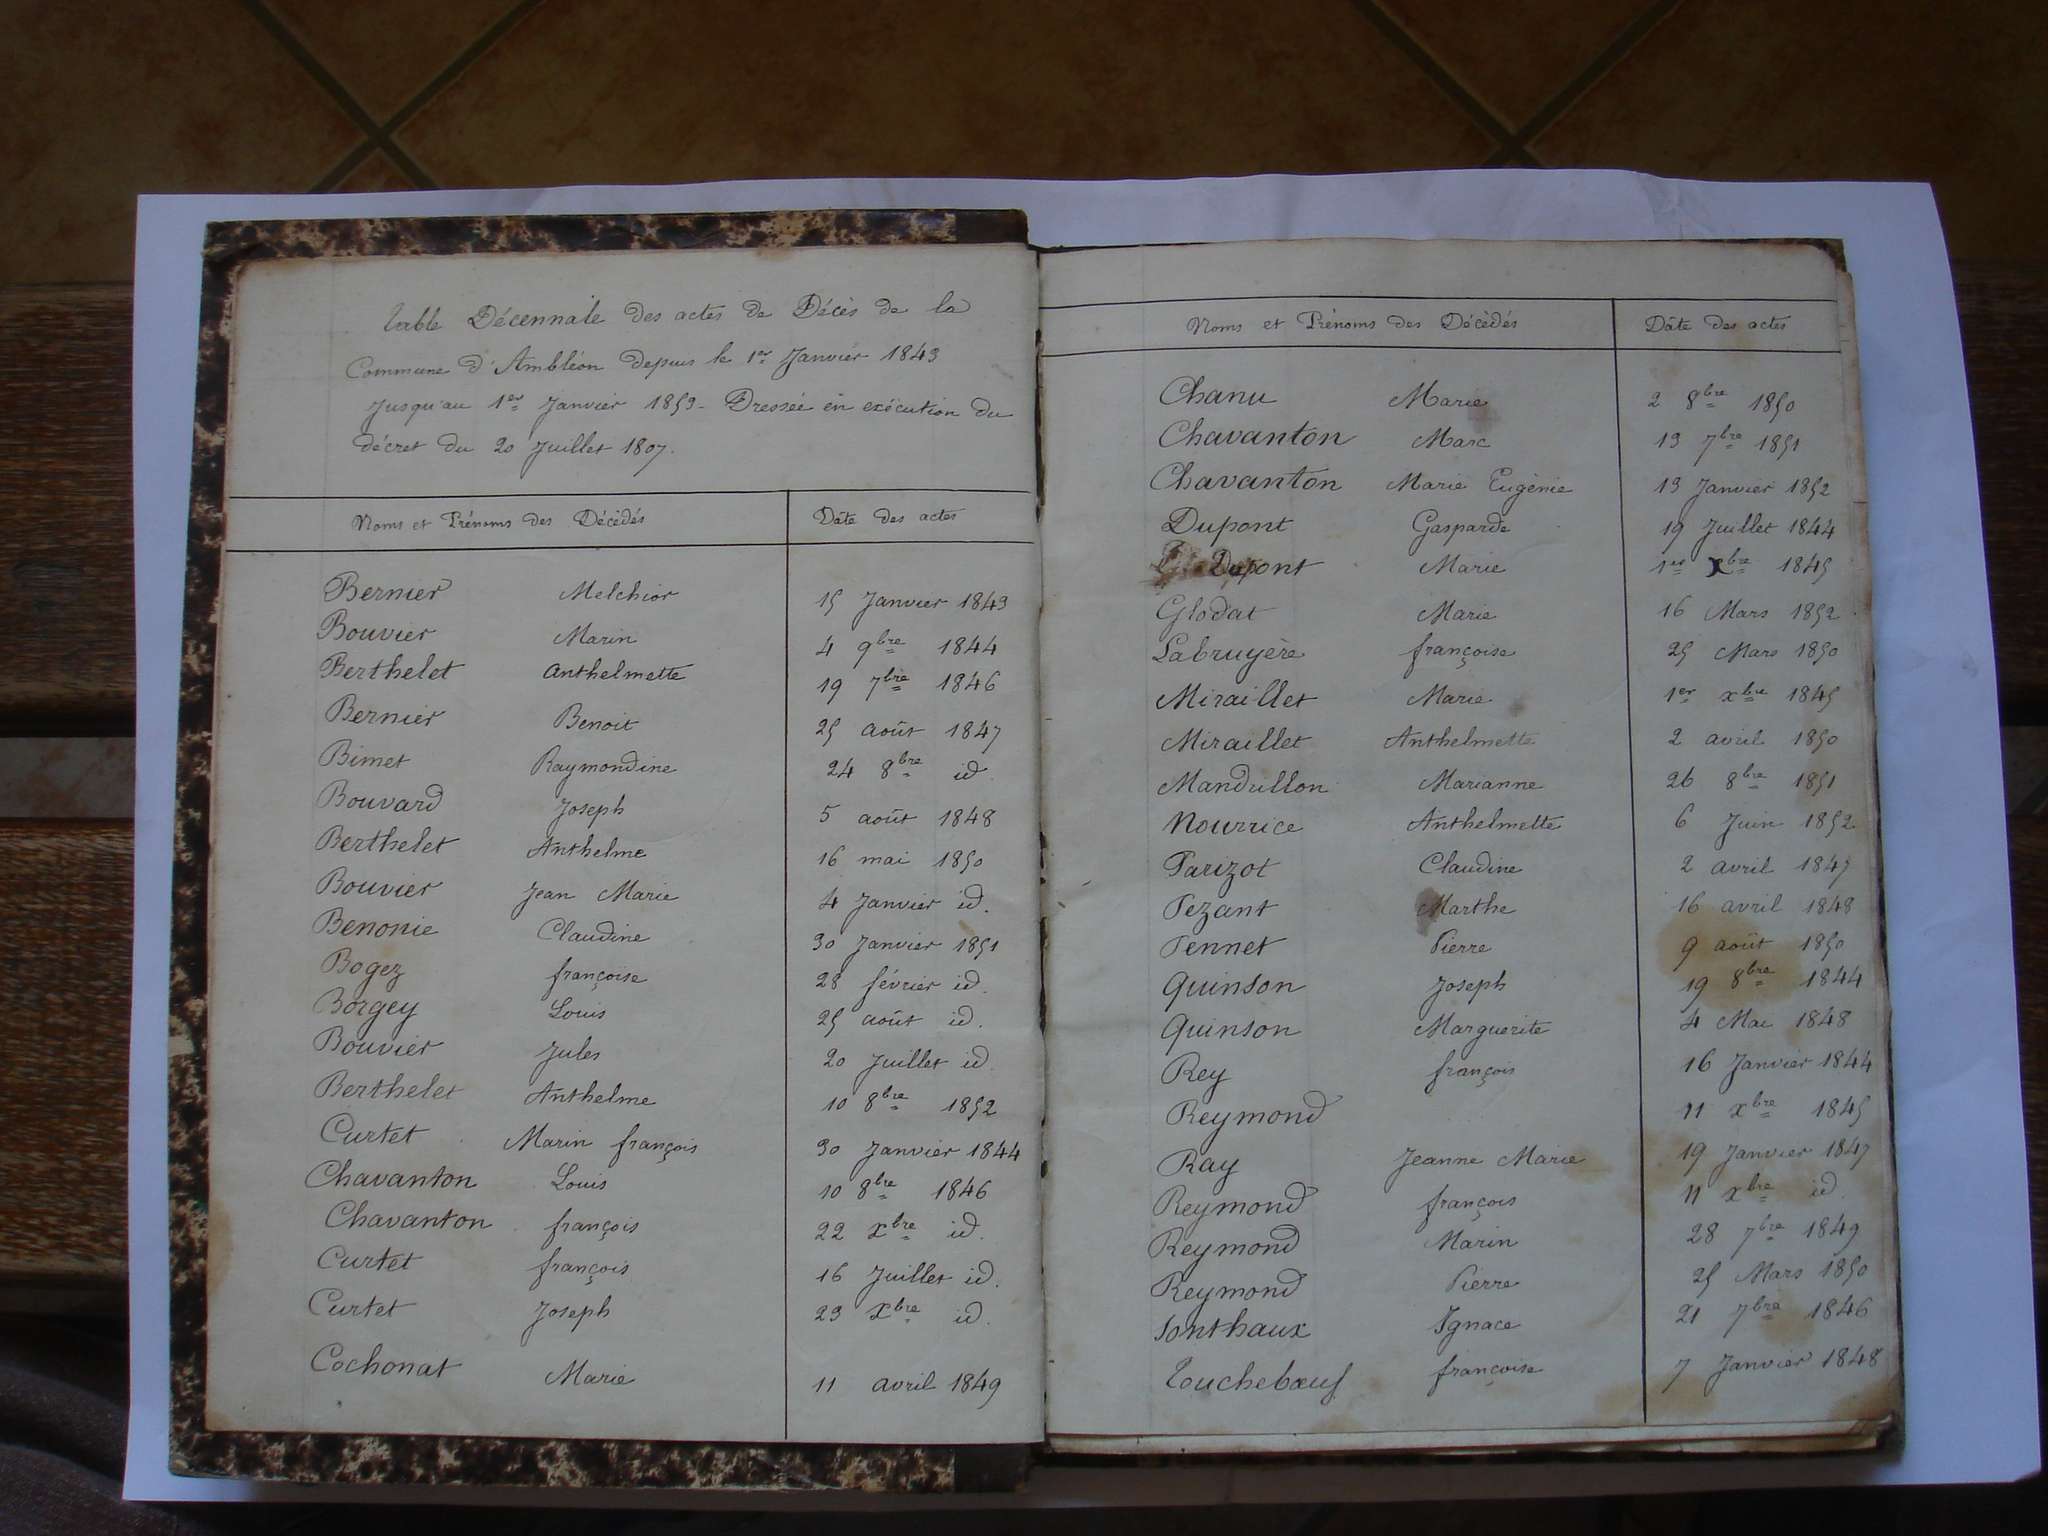 table Décennale des actes de Décès de la
Commune d'Ambléon depuis le 1er Janvier 1843
jusqu'au 1er Janvier 1853 - Dressée en exécution du
décret du 20 Juillet 1807.
Noms et Prénoms des Décèdés Dâte des actes
Bernier Melchior 15 Janvier 1843
Bouvier Marin 4 9bre 1844
Berthelet Anthelmette 19 7bre 1846
Bernier Benoit 25 août 1847
Bimet Raymondine 24 8bre id.
Bouvard Joseph 5 août 1848
Berthelet Anthelme 16 mai 1850
Bouvier Jean Marie 4 Janvier id.
Benonie Claudine 30 Janvier 1851
Bogez françoise 28 février id.
Borgey Louis 25 août id.
Bouvier Jules 20 Juillet id.
Berthelet Anthelme 10 8bre 1852
Curtet Marin françois 30 Janvier 1844
Chavanton Louis 10 8bre 1846
Chavanton françois 22 xbre id.
Curtet françois 16 Juillet id.
Curtet Joseph 23 xbre id.
Cochonat Marie 11 avril 1849
Noms et Prénoms des Décèdés Dâte des actes
Chanu Marie 2 8bre 1850
Chavanton Marc 13 7bre 1851
Chavanton Marie Eugènie 13 Janvier 1852
Dupont Gasparde 19 Juillet 1844
Dupont Marie 1er xbre 1845
Glodat Marie 16 Mars 1852
Labruyère françoise 25 Mars 1850
Miraillet Marie 1er xbre 1845
Miraillet Anthelmette 2 avril 1850
Mandullon Marianne 26 8bre 1851
Nourrice Anthelmette 6 Juin 1852
Parizot Claudine 2 avril 1847
Pezant Marthe 16 avril 1848
Pennet Pierre 9 août 1850
Quinson Joseph 19 8bre 1844
Quinson Marguerite 4 Mai 1848
Rey françois 16 Janvier 1844
Reymond 11 xbre 1845
Ray Jeanne Marie 19 Janvier 1847
Reymond françois 11 xbre id.
Reymond Marin 28 7bre 1849
Reymond Pierre 25 Mars 1850
Sonthaux Ignace 21 7bre 1846
Touchebœuf françoise 7 Janvier 1848